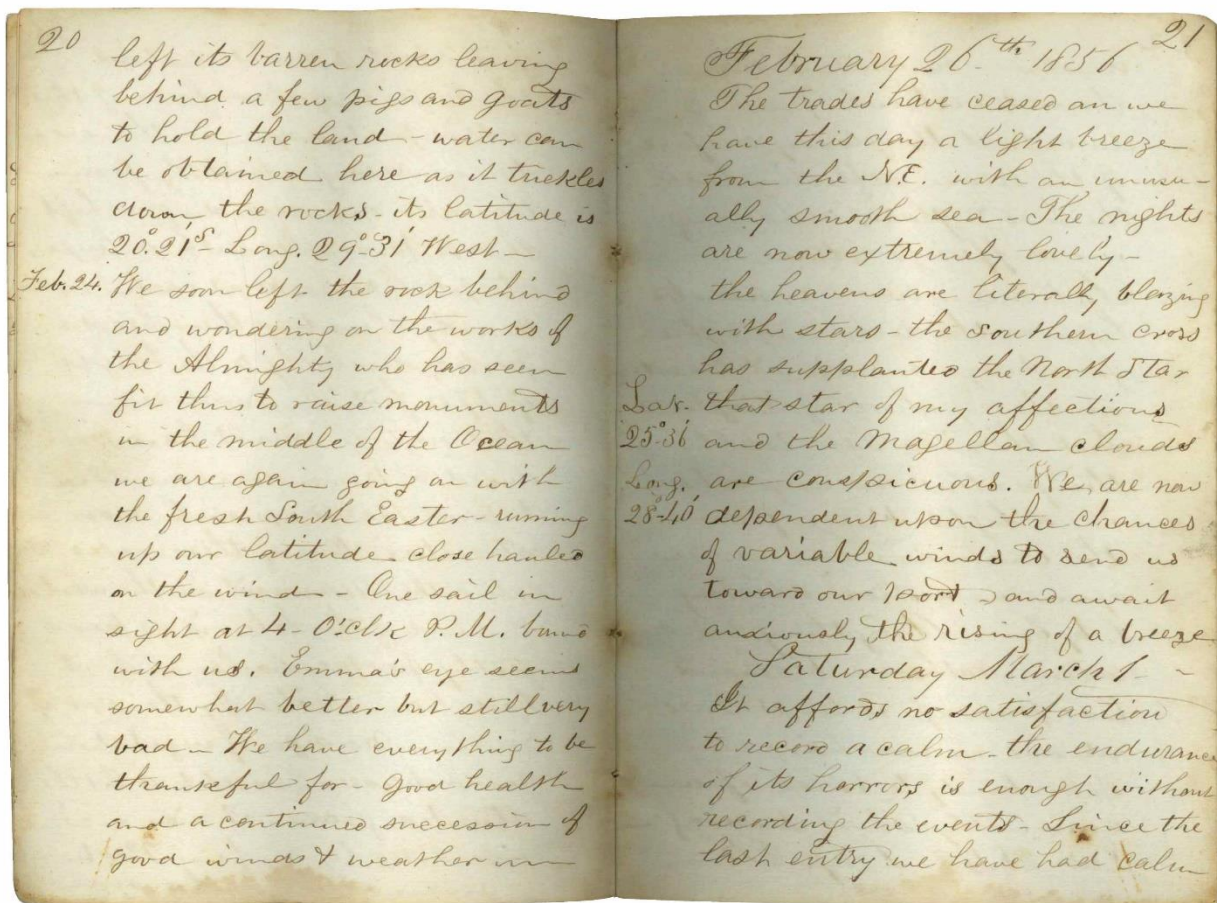 20
left its barren rocks leaving
behind a few pigs and goats
to hold the land - water can
be obtained here as it trickles
down the rocks - its latitude is
20°.21'S - Long. 29°-31' West -
Feb. 24. We soon left the rock behind
and wondering on the works of
the Almighty who has seen
fit thus to raise monuments
in the middle of the Ocean
we are again going on with
the fresh South Easter - running
up our latitude close hauled
on the wind - One sail in
sight at 4 - O'clk P.M. bound
with us. Emma's eye seems
somewhat better but still very
bad - We have everything to be
thankful for - good health
and a continued succession of
good winds & weather
21
February 26th 1856
The trades have ceased an we
have this day a light breeze
from the N.E. with an unusu-
ally smooth sea - The nights
are now extremely lovely -
the heavens are literally blazing
with stars - the Southern cross
has supplanted the North Star
that star of my affections
and the Magellan clouds
are conspicuous. We are now
dependent upon the chances
of variable winds to send us
toward our port, and await
anxiously the rising of a breeze
Lat.
25°-36'
Long.
28°-40'
Saturday March 1 -
It affords no satisfaction
to record a calm - the endurance
of its horrors is enough without
recording the events - Since the
last entry we have had calm